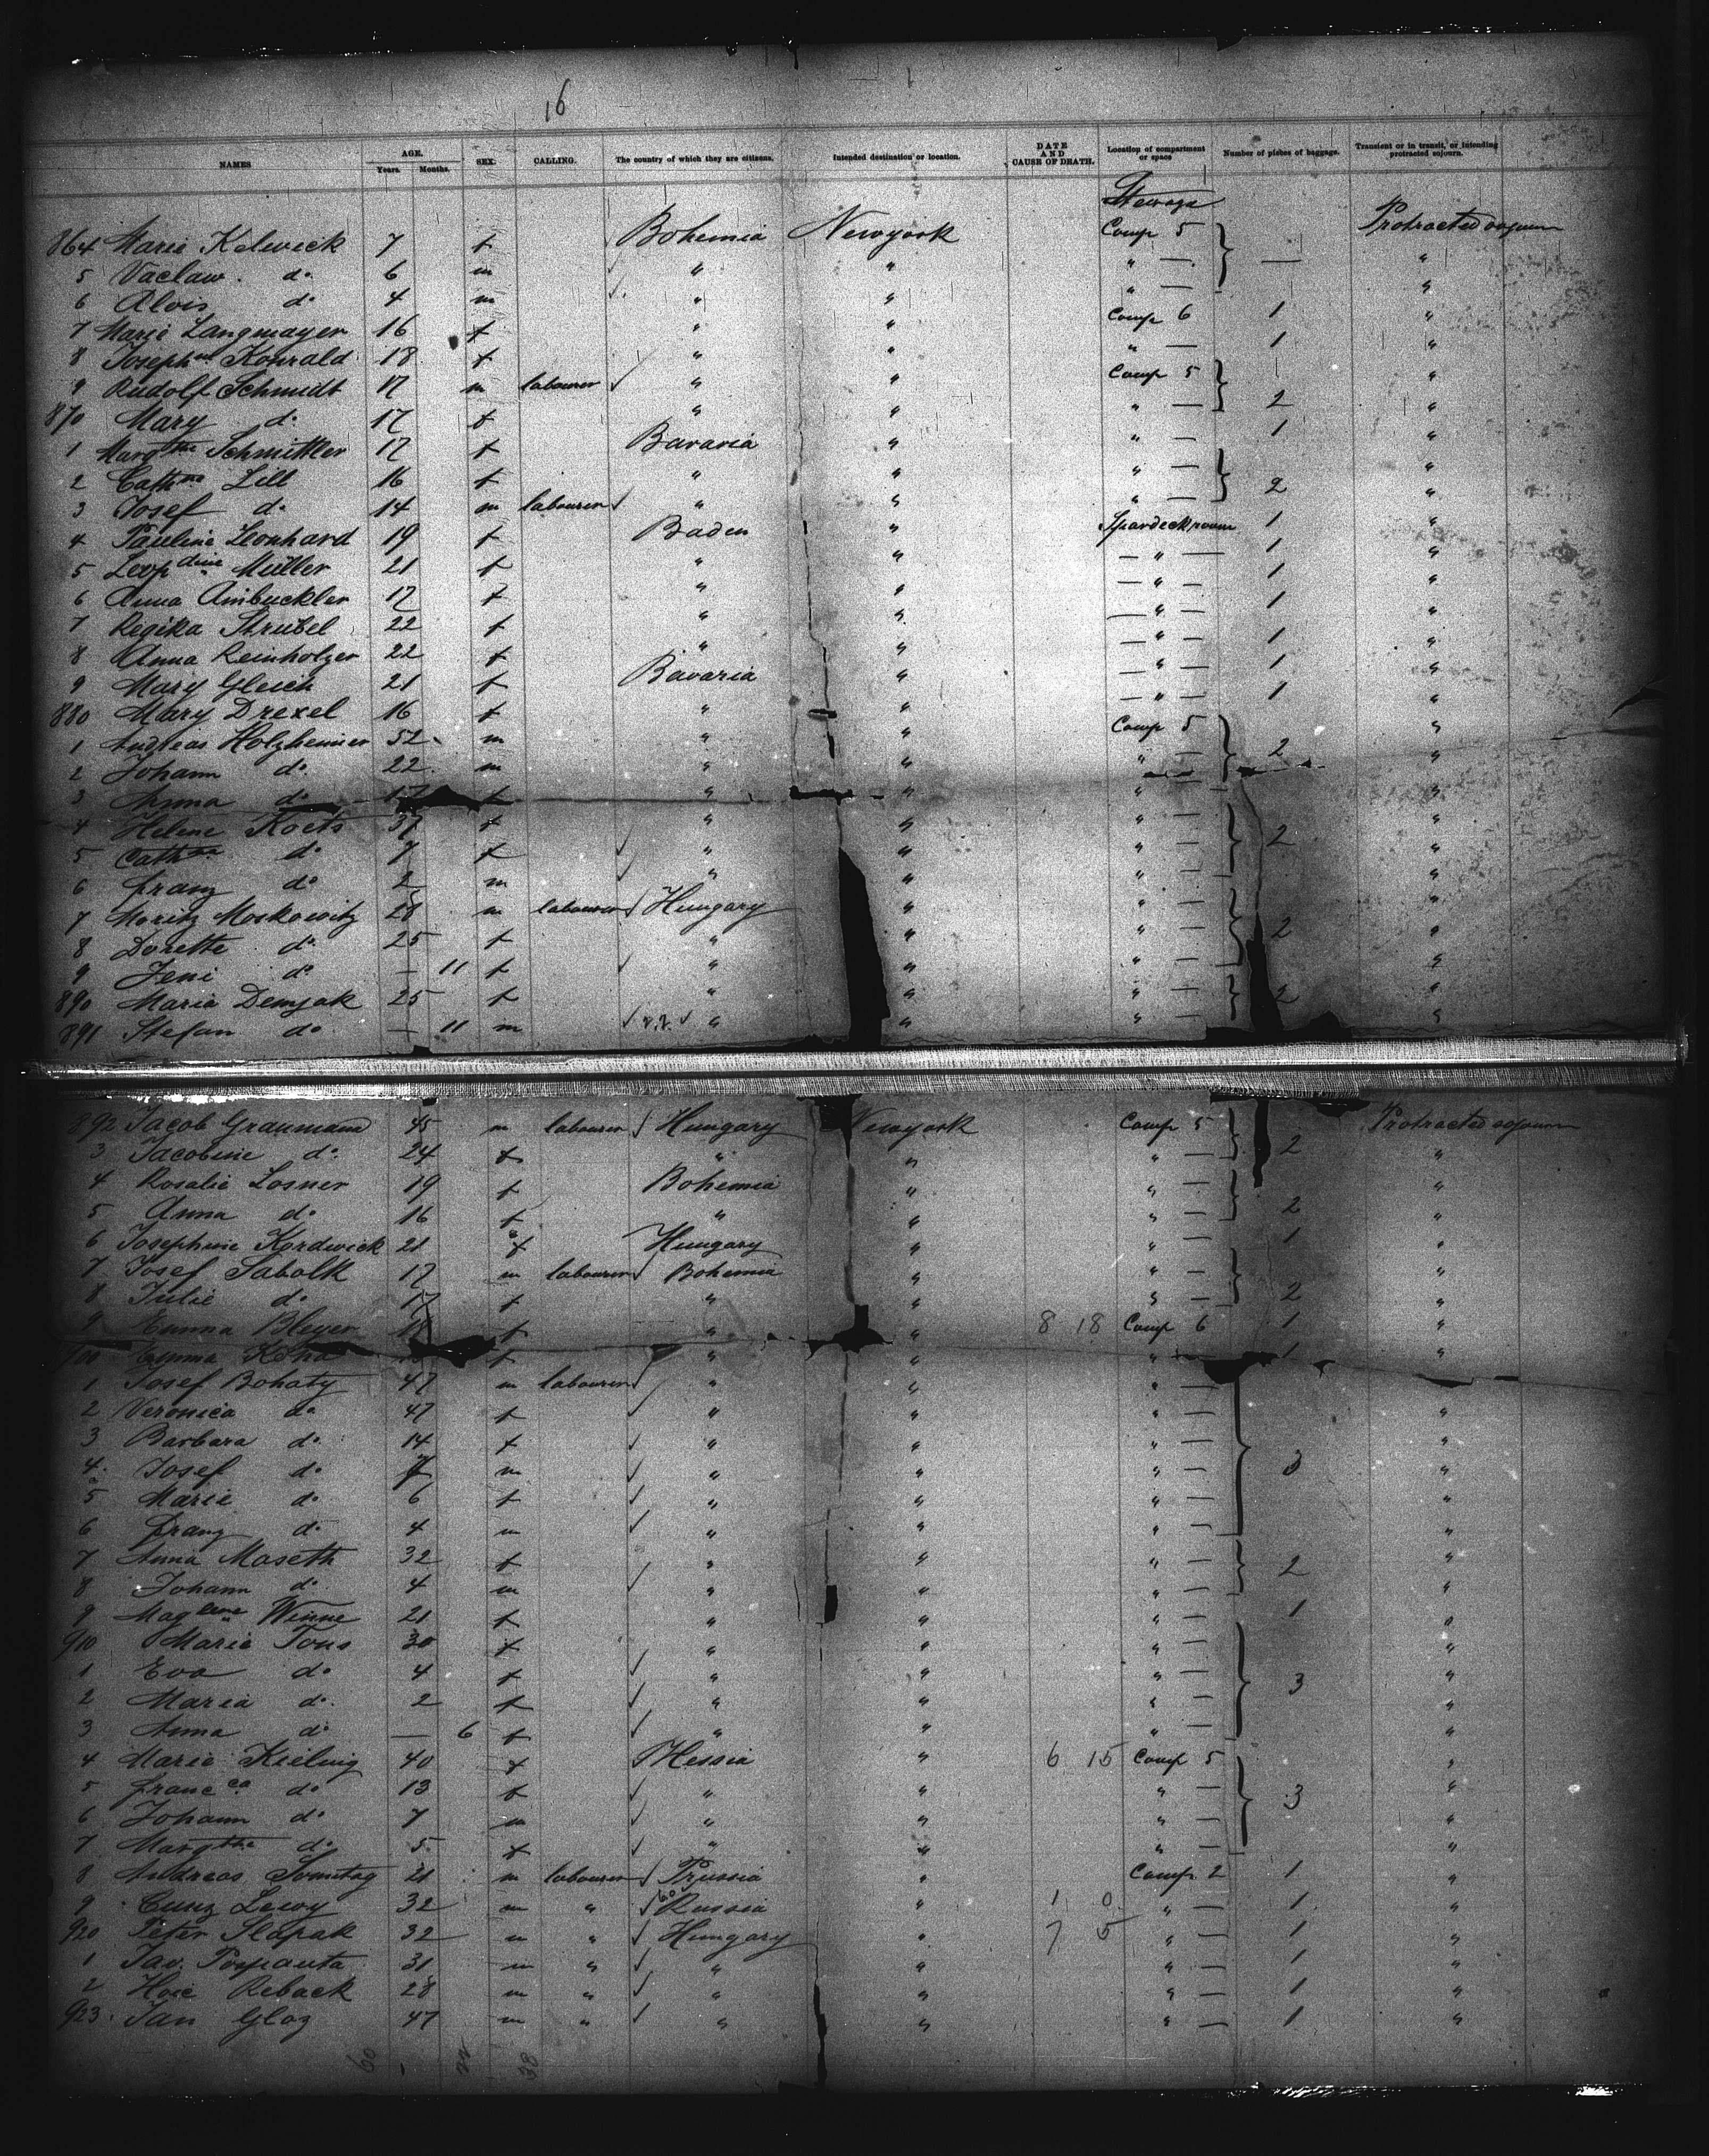 16
NAMES AGE. Years. Months. SEX. CALLING. The country of which they are citizens. Intended destination or location. DATE AND CAUSE OF DEATH. Location of compartment or space Number of pieces of baggage. Transient or in transit, or intending protracted sojourn.
Steerage
864 Marie Kelwick 7 f Bohemia Newyork Comp 5 — Protracted sojourn
5 Vaclaw do 6 m " " " — "
6 Alois do 4 m " " " — "
7 Marie Langmayer 16 f " " Comp 6 1 "
8 Joseph Konrald 18 f " " " — 1 "
9 Rudolf Schmidt 17 m labourer " " Comp 5 "
870 Mary do 17 f " " " — 2 "
1 Margthe Schmittler 17 f Bavaria " " — 1 "
2 Cathna Lill 16 f " " " — "
3 Josef do 14 m labourer " " " — 2 "
4 Pauline Leonhard 19 f Baden " Spardeckroom 1 "
5 Leopdine Müller 21 f " " — " — 1 "
6 Anna Ambuckler 17 f " " — " — 1 "
7 Regika Strubel 22 f " " — " — 1 "
8 Anna Reinholzer 22 f " " — " — 1 "
9 Mary Gleich 21 f Bavaria " — " — 1 "
880 Mary Drexel 16 f " " — " — 1 "
1 Andreas Holzheimer 52 m " " Comp 5 "
2 Johann do 22 m " " " — 2 "
3 Anna do f " " " — "
4 Helene Koets 37 f " " " — "
5 Cathna do 7 f " " " — 2 "
6 Franz do 2 m " " " — "
7 Moritz Moskowitz 28 m labourer Hungary " " — "
8 Dorette do 25 f " " " — 2 "
9 Jeni do — 11 f " " " — "
890 Maria Demjak 25 f " " " — 2 "
891 Stefan do — 11 m " " " — "
892 Jacob Graumann 45 m labourer Hungary Newyork Comp 5 Protracted sojourn
3 Jacobine do 24 f " " " — 2 "
4 Rosalie Losner 19 f Bohemia " " — "
5 Anna do 16 f " " " — 2 "
6 Josephine Kordwick 21 f Hungary " " — 1 "
7 Josef Sabolk 17 m labourer Bohemia " " — "
8 Julie do 17 f " " " — 2 "
9 Emma Bleyer f " " 8 18 Comp 6 1 "
900 Emma Kohn f " " " — 1 "
1 Josef Bohaty 47 m labourer " " " —
2 Veronica do 47 f " " " — "
3 Barbara do 14 f " " " — "
4 Josef do 7 m " " " — 3 "
5 Marie do 6 f " " " — "
6 Franz do 4 m " " " — "
7 Anna Maseth 32 f " " " — "
8 Johann do 4 m " " " — 2 "
9 Maglene Winne 21 f " " " — 1 "
910 Marie Tous 30 f " " " — "
1 Eva do 4 f " " " — "
2 Maria do 2 f " " " — 3 "
3 Anna do — 6 f " " " — "
4 Marie Kieling 40 f Hessia " 6 15 Comp 5 "
5 Francca do 13 f " " " — 3 "
6 Johann do 7 m " " " — "
7 Margthe do 5 f " " " — "
8 Andreas Sonntag 21 m labourer Prussia " Comp 2 1 "
9 Cunz Lewy 32 m " Russia " 1 0 " — 1 "
920 Peter Slapak 32 m " Hungary " 7 5 " — 1 "
1 Jav. Pospauta 31 m " " " " — 1 "
2 Hoic Reback 28 m " " " " — 1 "
923 Jan Gloz 47 m " " " " — 1 "
60 22 38